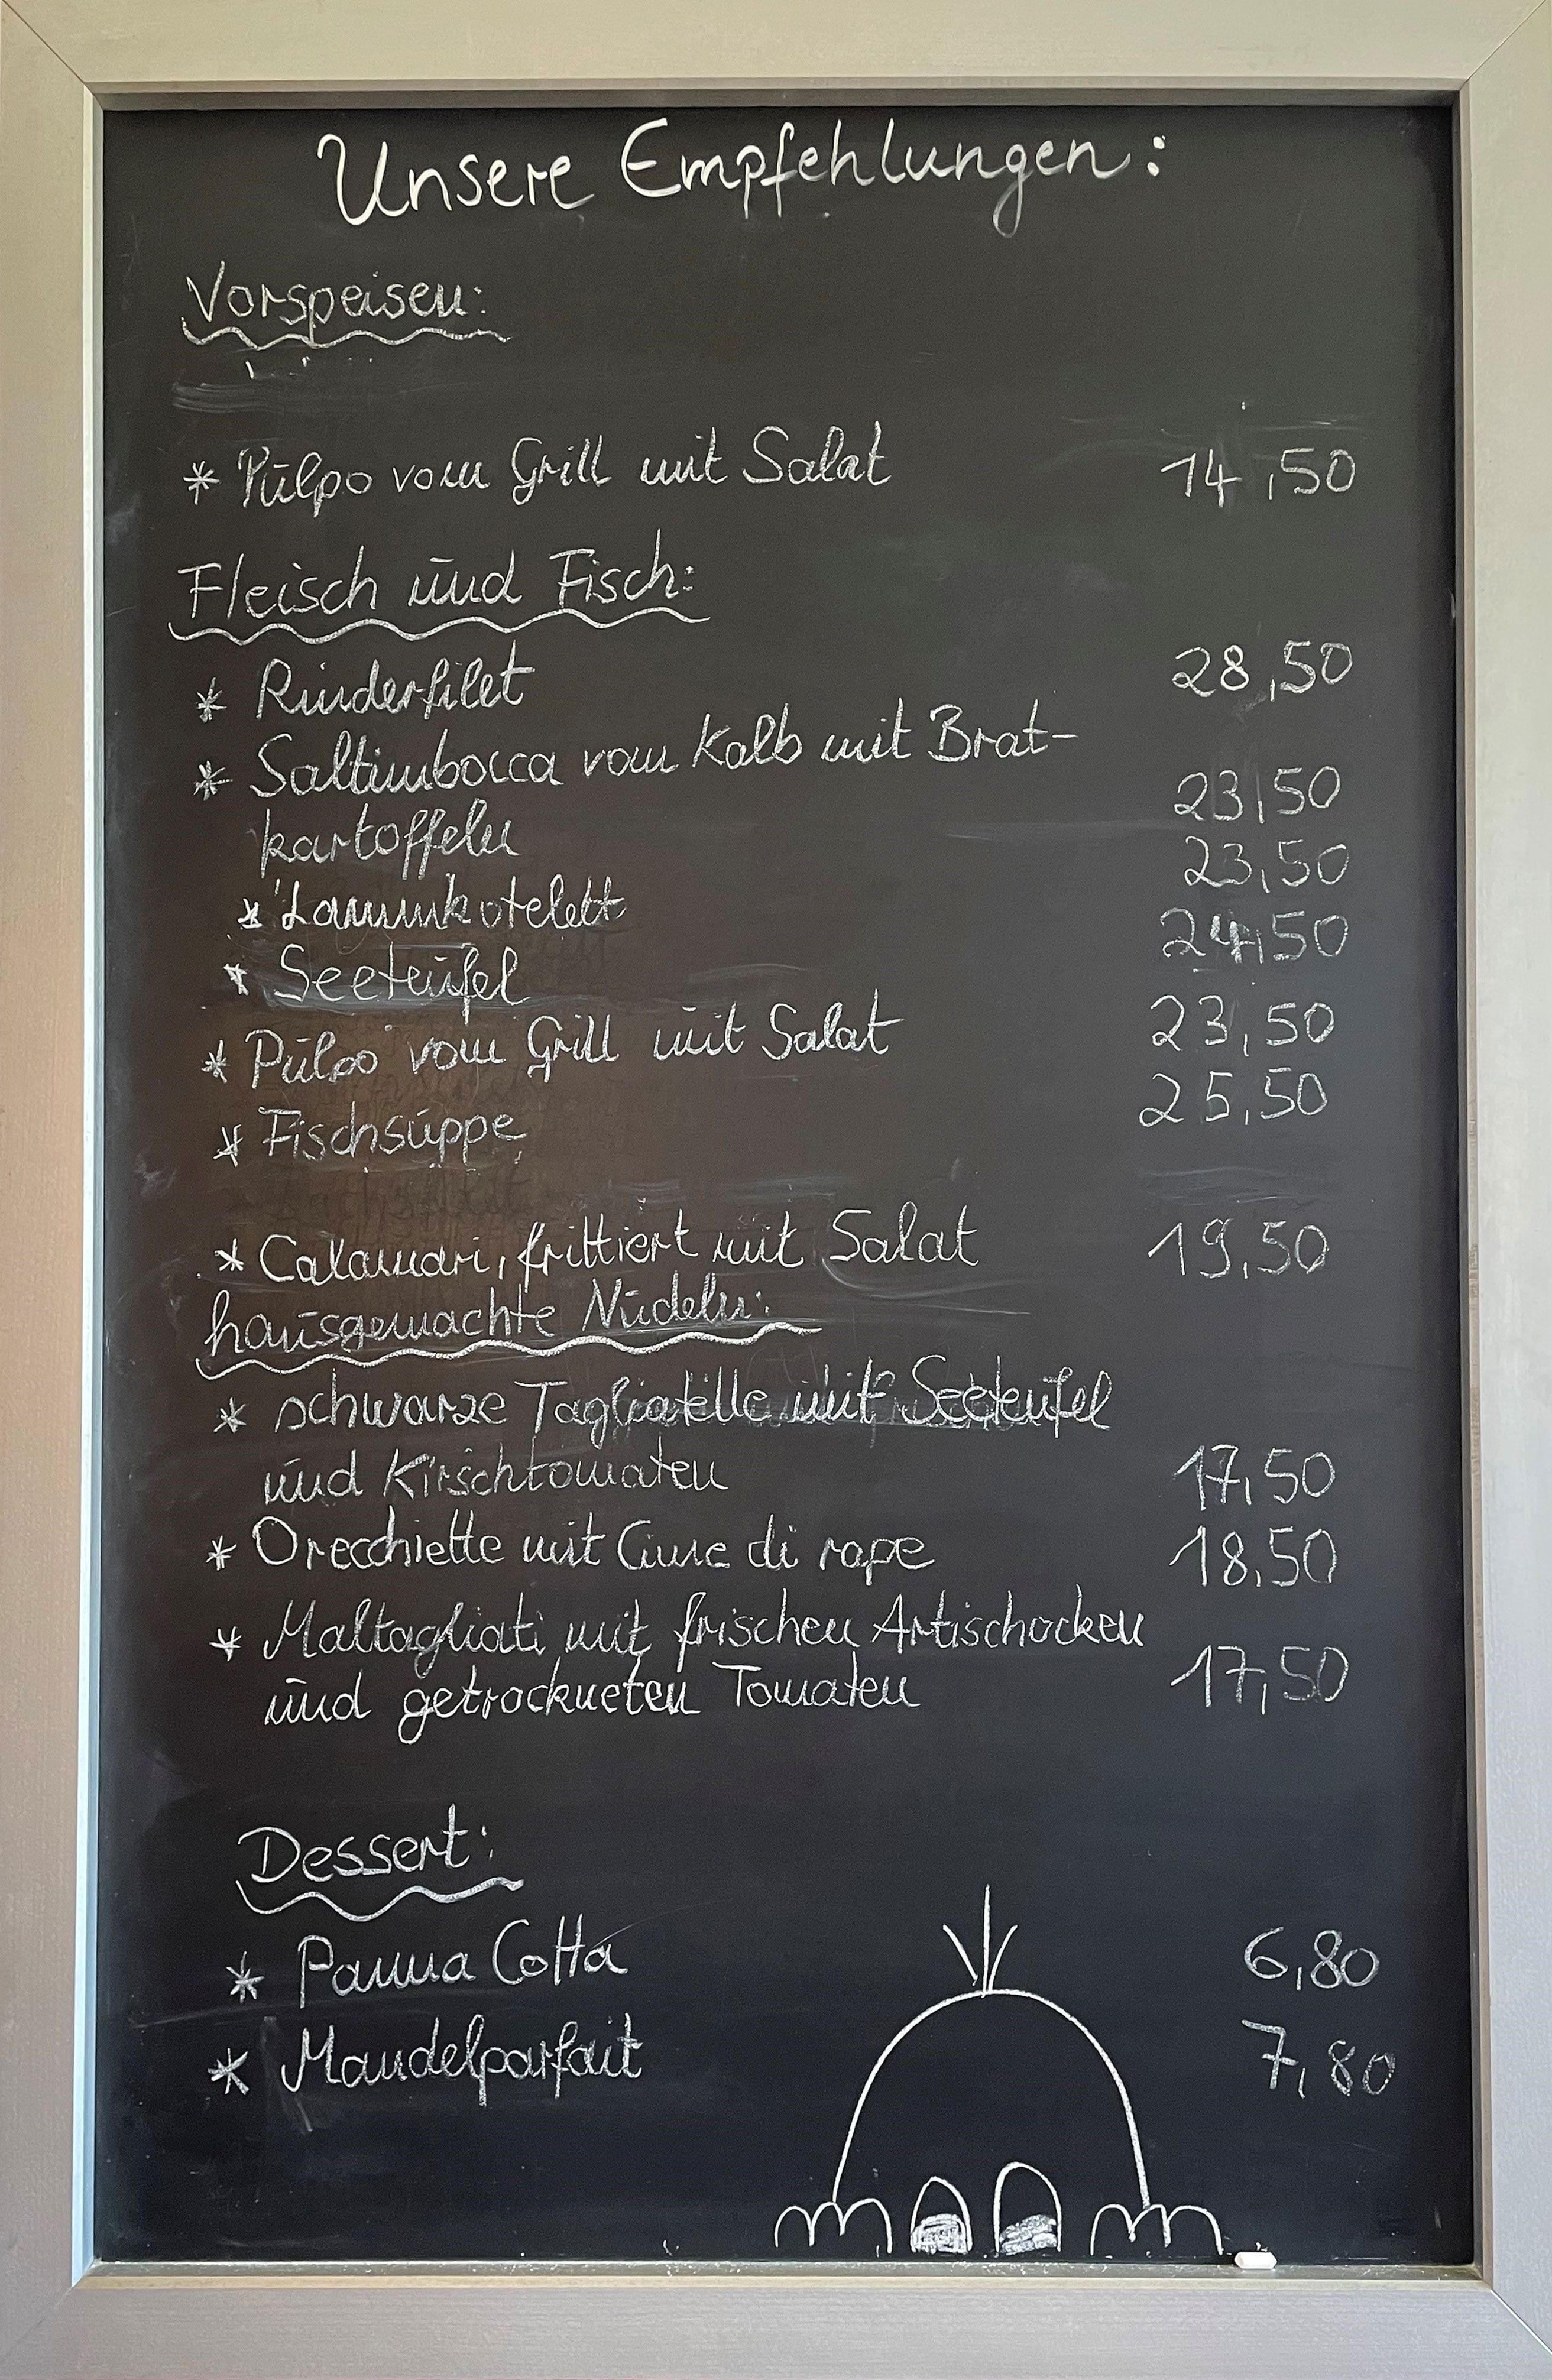 Unsere Empfehlungen:
Vorspeisen:
* Pulpo vom Grill mit Salat 14,50
Fleisch und Fisch:
* Rinderfilet 28,50
* Saltimbocca vom Kalb mit Brat-
kartoffeln 23,50
* Lammkotelett 23,50
* Seeteufel 24,50
* Pulpo vom Grill mit Salat 23,50
* Fischsuppe 25,50
* Calamari, frittiert mit Salat 19,50
hausgemachte Nudeln:
* schwarze Tagliatelle mit Seeteufel
und Kirschtomaten 17,50
* Orecchiette mit Cime di rape 18,50
* Maltagliati mit frischen Artischocken
und getrockneten Tomaten 17,50
Dessert:
* Panna Cotta 6,80
* Mandelparfait 7,80